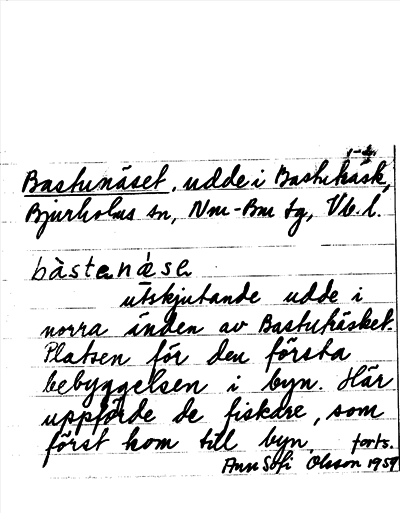 Bastunäset, udde i Bastuträsk,
Bjurholms sn, Nm-Bm tg, Vb. l.
bàstenǽse
utskjutande udde i
norra änden av Bastuträsket.
Platsen för den första
bebyggelsen i byn. Här
uppförde de fiskare, som
först kom till byn forts.
Ann Sofi Olsson 1959